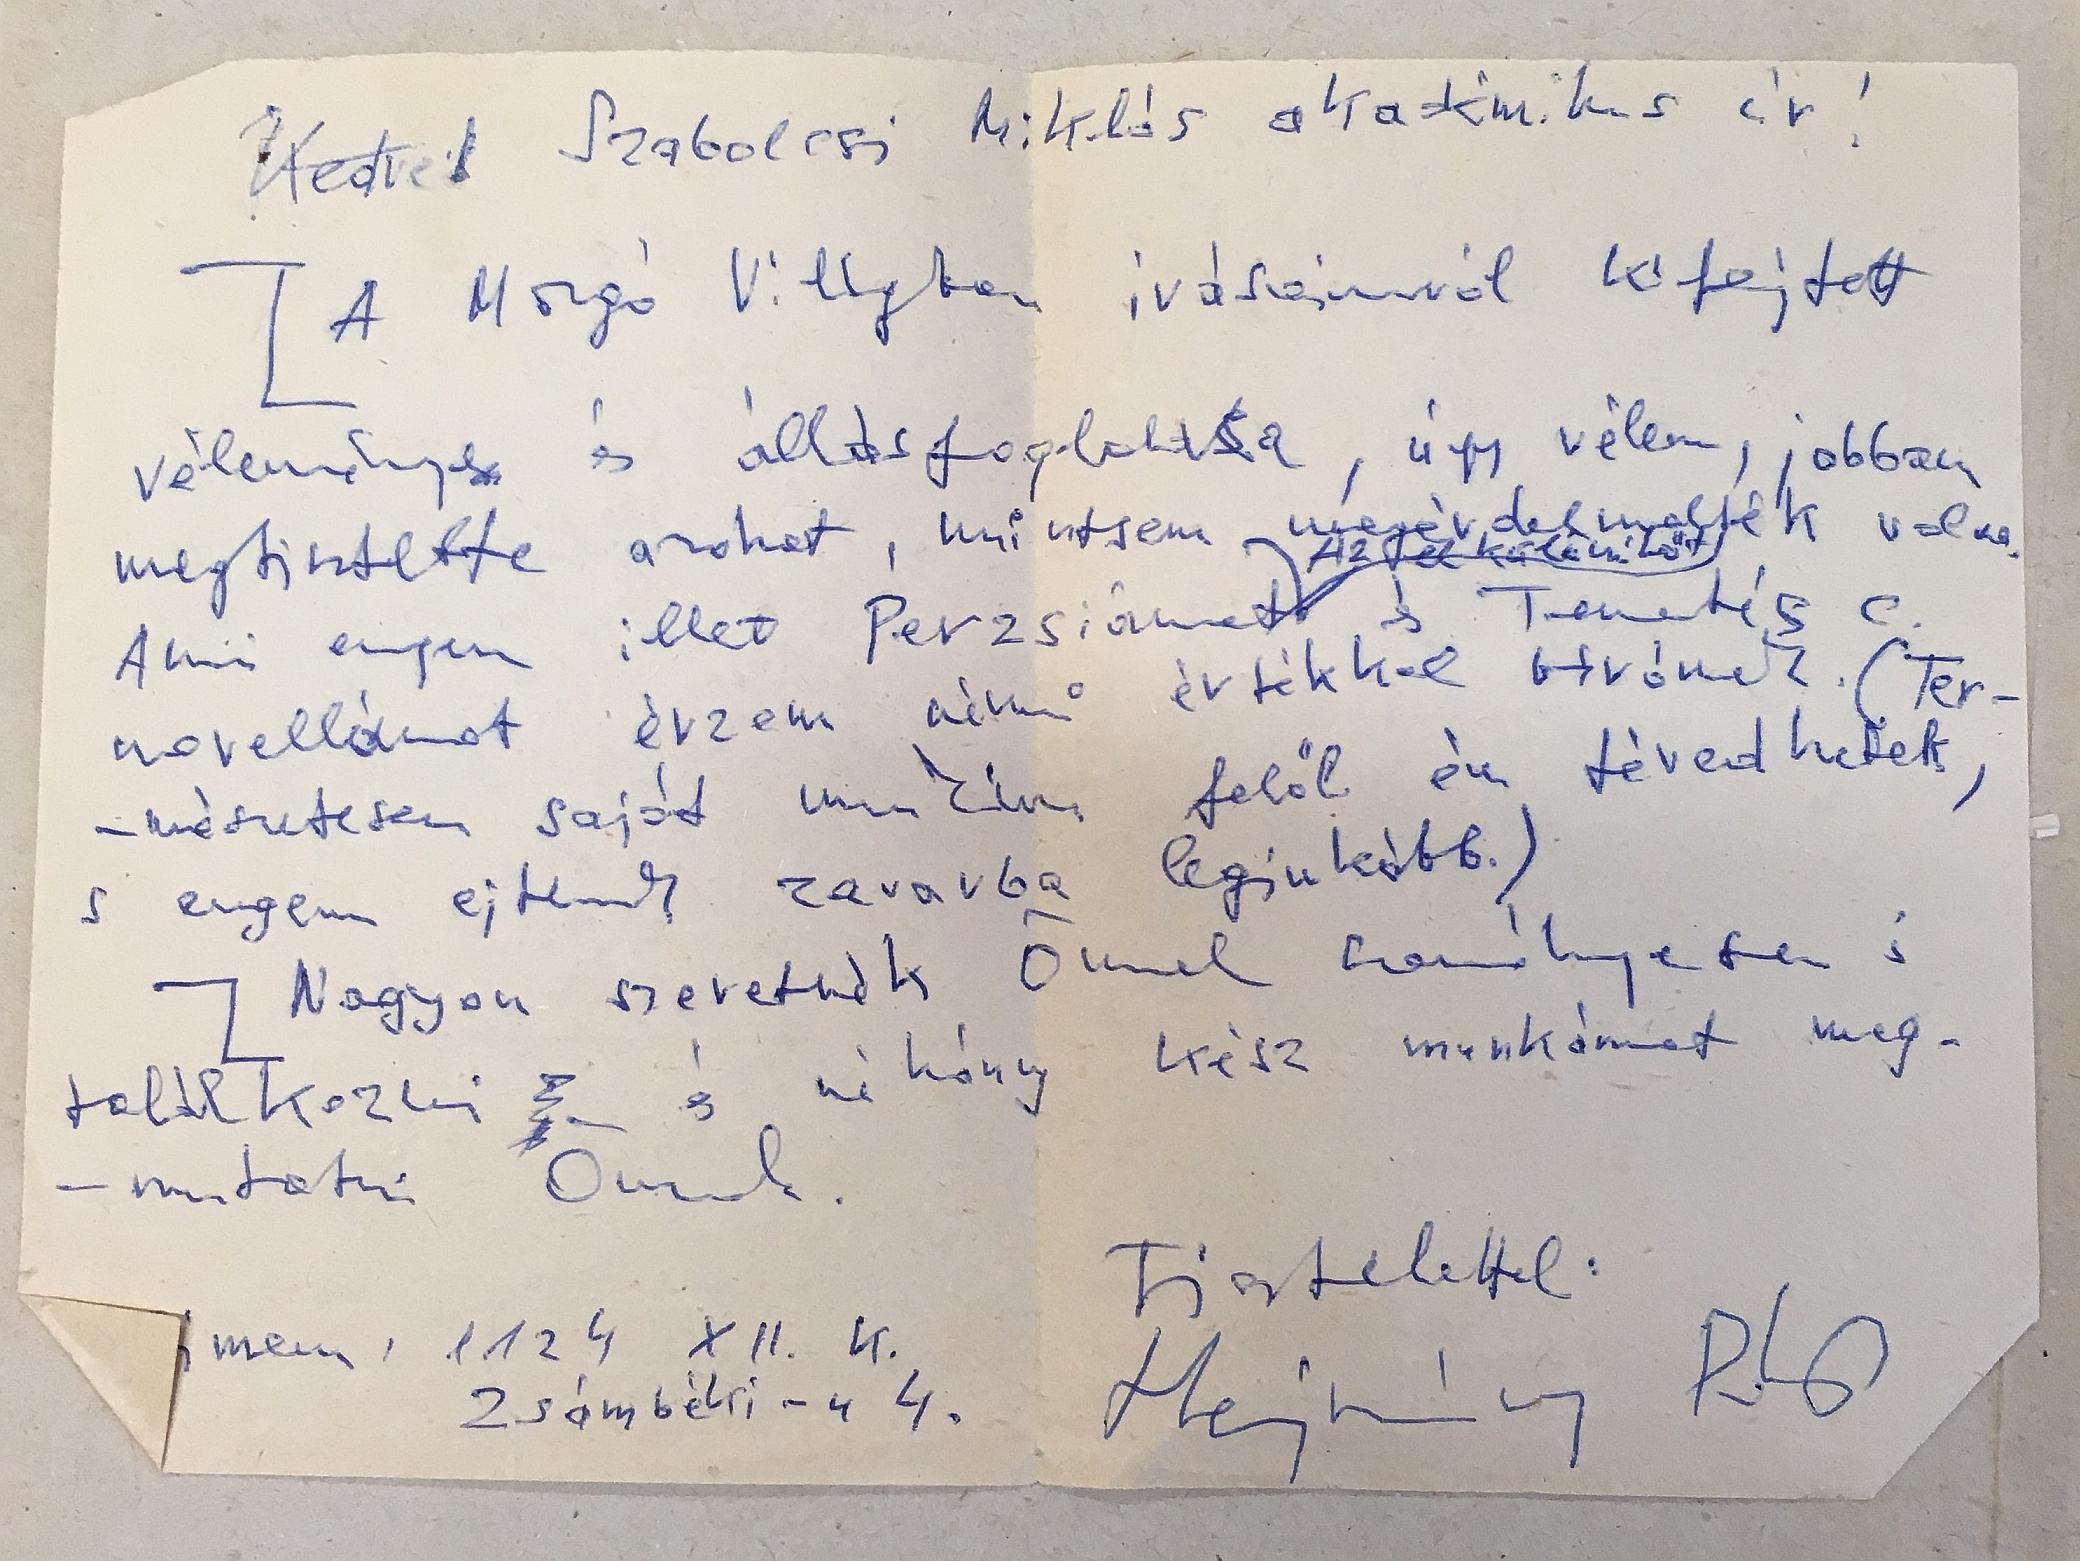 Kedves Szabolcsi Miklós akadémikus úr!
A Mozgó Világban írásaimról kifejtett
véleménye és állásfoglalása, úgy vélem, jobban
megtisztelte azokat, mintsem megérdemelték volna.
Az
Ami engem illet Perzsiámat és Temetés c.
novellámat érzem némi értékkel bírónak. (Ter-
-mészetesen saját munkáim felől én tévedhetek,
s engem ejtenek zavarba leginkább.)
Nagyon szeretnék Önnel személyesen is
találkozni és néhány kész munkámat meg-
-mutatni Önnek.
Tisztelettel:
Hajnóczy
címem: 1124 XII. k.
Zsámbéki-u 4.